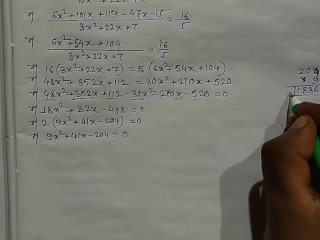 ⇒ 6x²+101x+119-47x-15 / 3x²+22x+7 = 16/5
⇒ 6x²+54x+104 / 3x²+22x+7 = 16/5
⇒ 16(3x²+22x+7) = 5(6x²+54x+104)
⇒ 48x²+352x+112 = 30x²+270x+520
⇒ 48x²+352x+112-30x²-270x-520=0
⇒ 18x²+82x-408=0
⇒ 2(9x²+41x-204)=0
⇒ 9x²+41x-204=0
204
x 9
1836